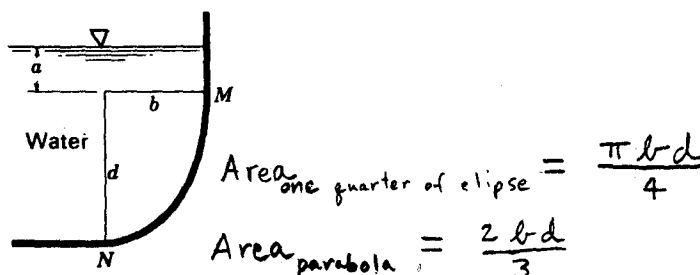 a
b
M
Water
d
N
Area one quarter of elipse = π b d / 4
Area parabola = 2 b d / 3